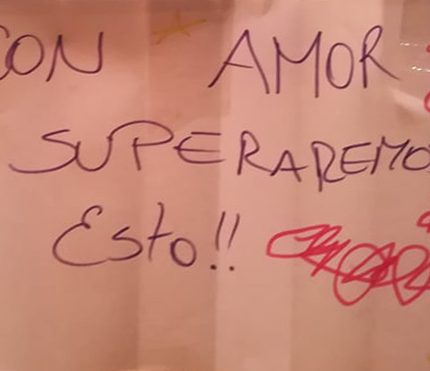 CON AMOR
SUPERAREMO
Esto!!